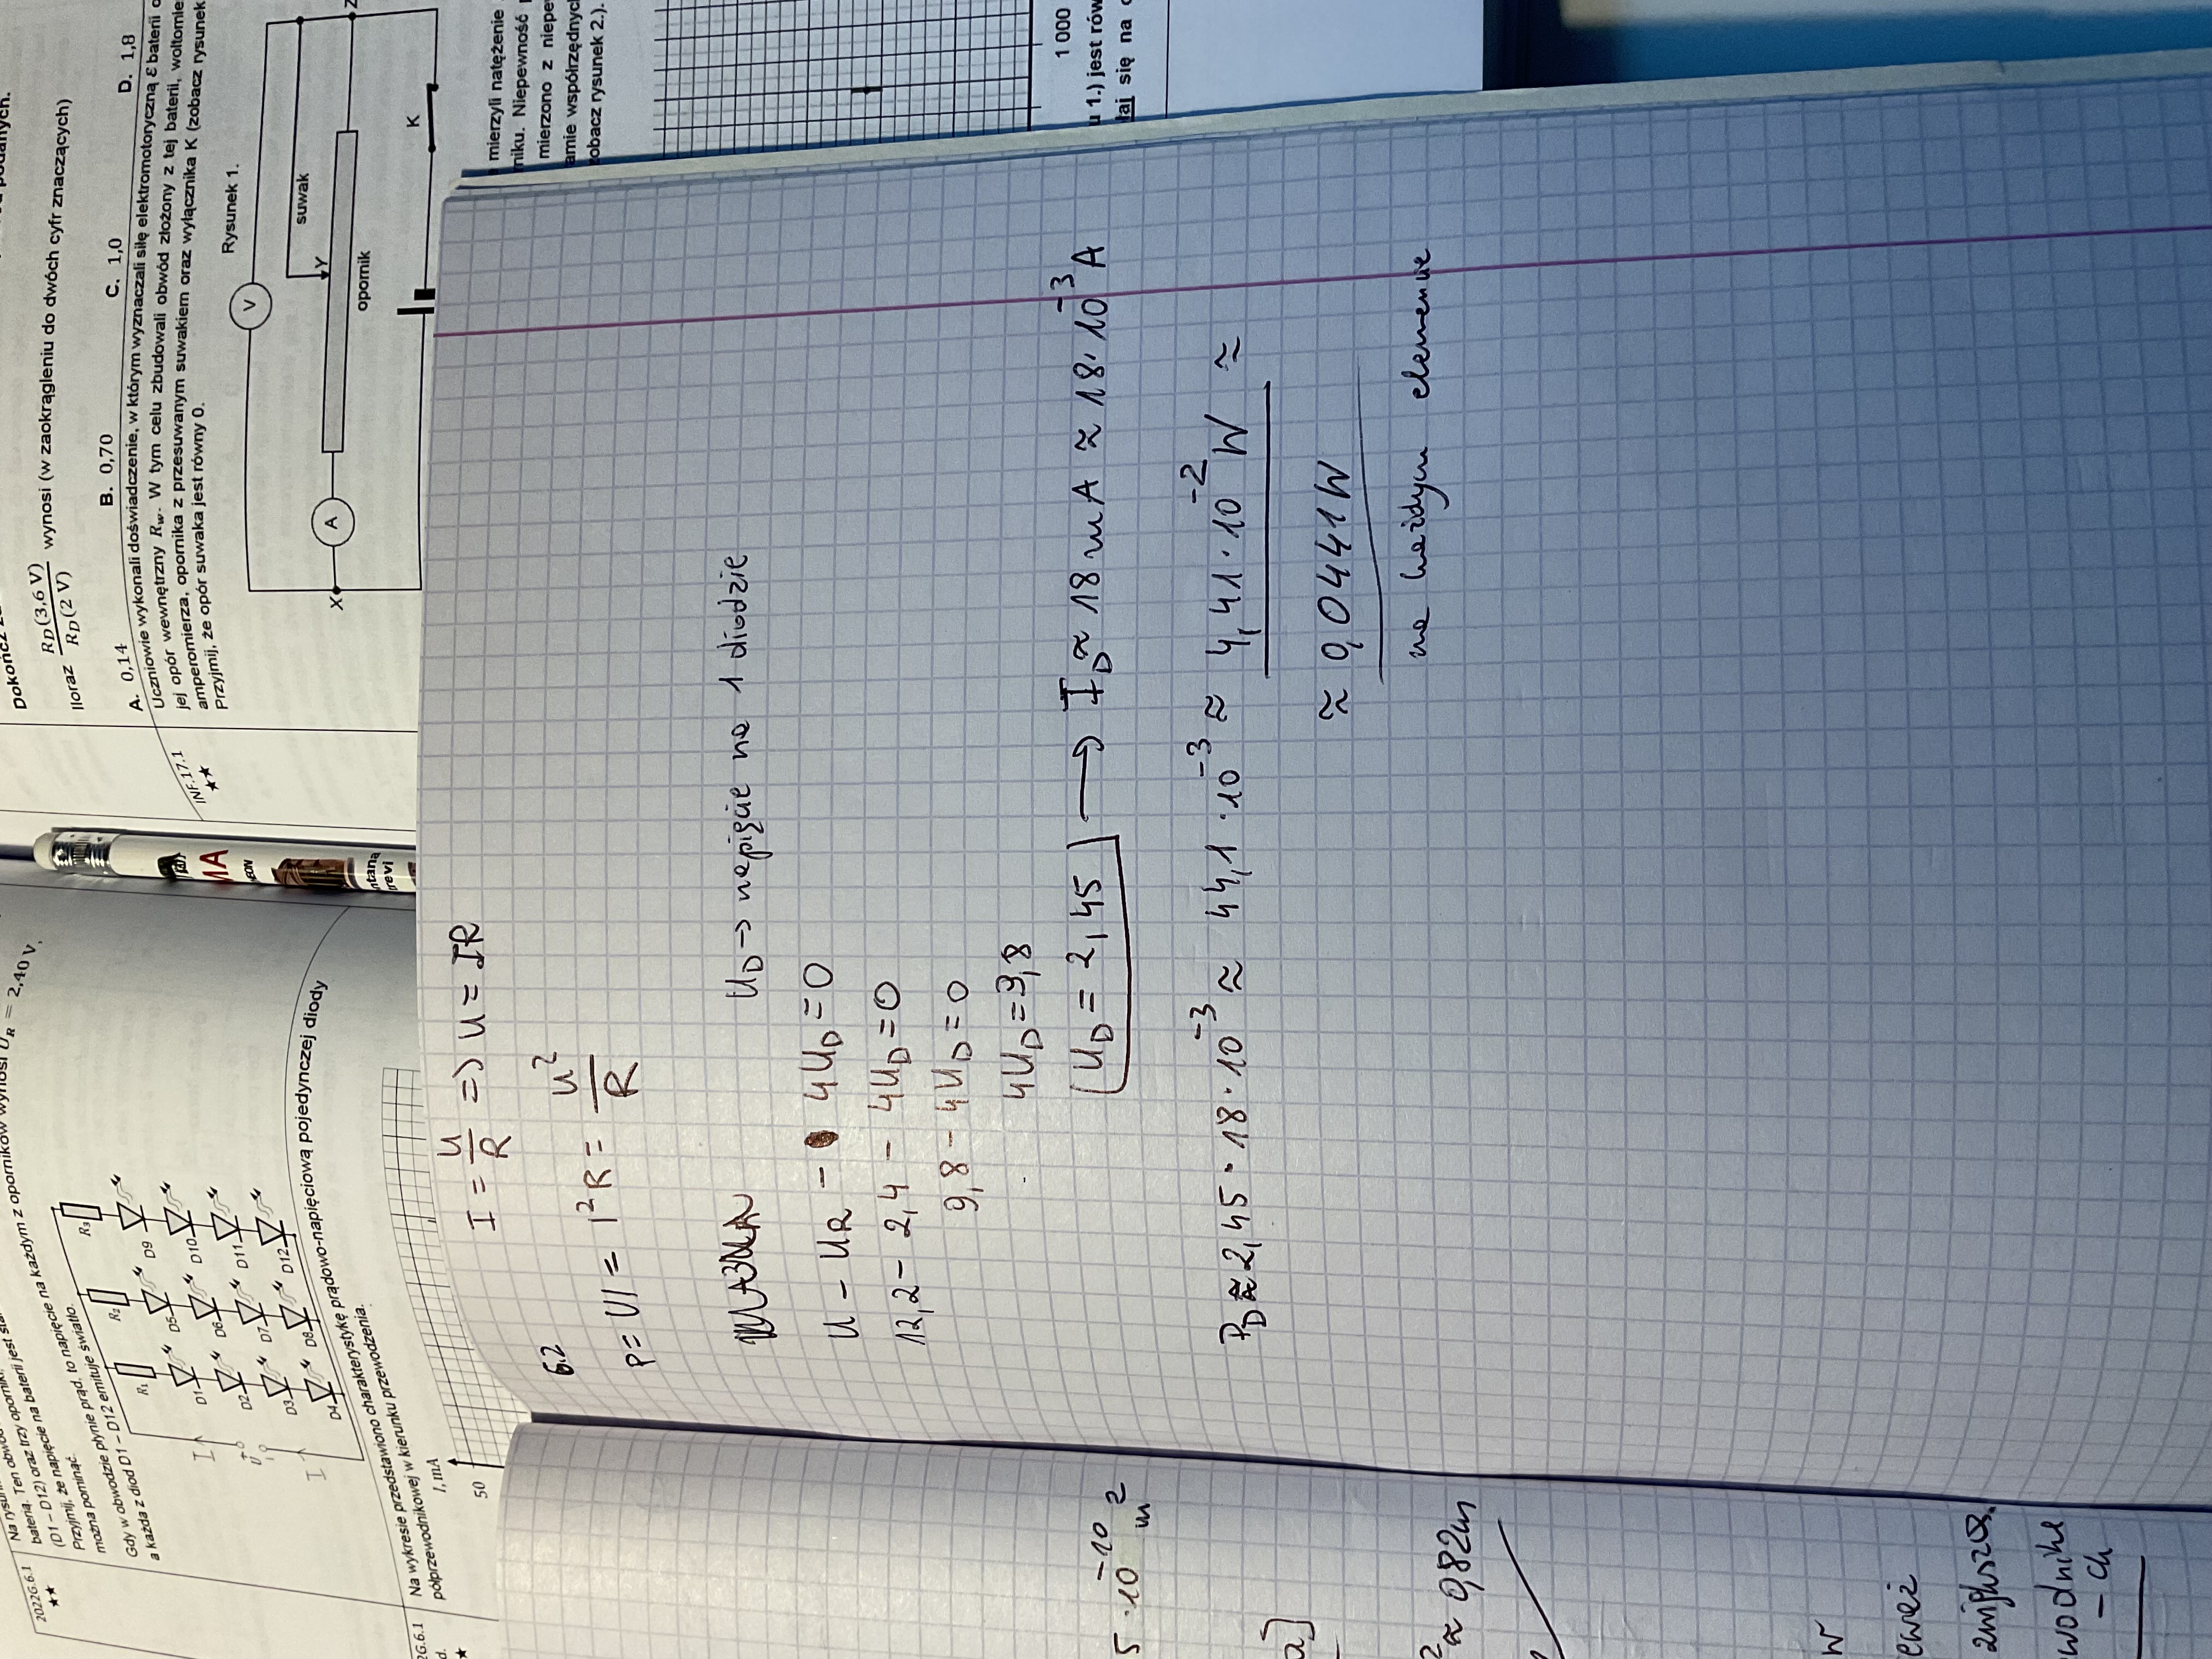 2022G.6.1
★★
Na rysun
bateria. Ten obwód
(D1 – D12) oraz trzy oporniki
Przyjmij, że napięcie na baterii jest sta
można pominąć.
Gdy w obwodzie płynie prąd, to napięcie na każdym z oporników wynosi U_R = 2,40 V,
a każda z diod D1 – D12 emituje światło.
R₁
R₂
R₃
D1
D2
D3
D4
D5
D6
D7
D8
D9
D10
D11
D12
I
U
I
Na wykresie przedstawiono charakterystykę prądowo-napięciową pojedynczej diody
półprzewodnikowej w kierunku przewodzenia.
2G.6.1
d.
★
I, mA
50
MA
NEON
ntana
trevi
podanych.
Dokończ
Iloraz R_D(3,6 V)/R_D(2 V) wynosi (w zaokrągleniu do dwóch cyfr znaczących)
A. 0,14 B. 0,70 C. 1,0 D. 1,8
INF.17.1
★★
Uczniowie wykonali doświadczenie, w którym wyznaczali siłę elektromotoryczną ℰ baterii o
jej opór wewnętrzny R_w. W tym celu zbudowali obwód złożony z tej baterii, woltomie
amperomierza, opornika z przesuwanym suwakiem oraz wyłącznika K (zobacz rysunek
Przyjmij, że opór suwaka jest równy 0.
Rysunek 1.
V
suwak
Y
A
X
Z
opornik
K
mierzyli natężenie
niku. Niepewność
mierzono z niepe
amie współrzędnych
zobacz rysunek 2.).
1 000
u 1.) jest rów
łaj się na
I = U/R => U = IR
6.2
P = UI = I²R = U²/R
U_D -> napięcie na 1 diodzie
U - U_R - 4U_D = 0
12,2 - 2,4 - 4U_D = 0
9,8 - 4U_D = 0
4U_D = 9,8
U_D = 2,45 ⟶ I_D ≈ 18 mA ≈ 18 · 10⁻³ A
P_D ≈ 2,45 · 18 · 10⁻³ ≈ 44,1 · 10⁻³ ≈ 4,41 · 10⁻² W ≈
≈ 0,0441 W
na każdym elemencie
5 · 10⁻¹⁰ m²
² ≈ 0,82m
W